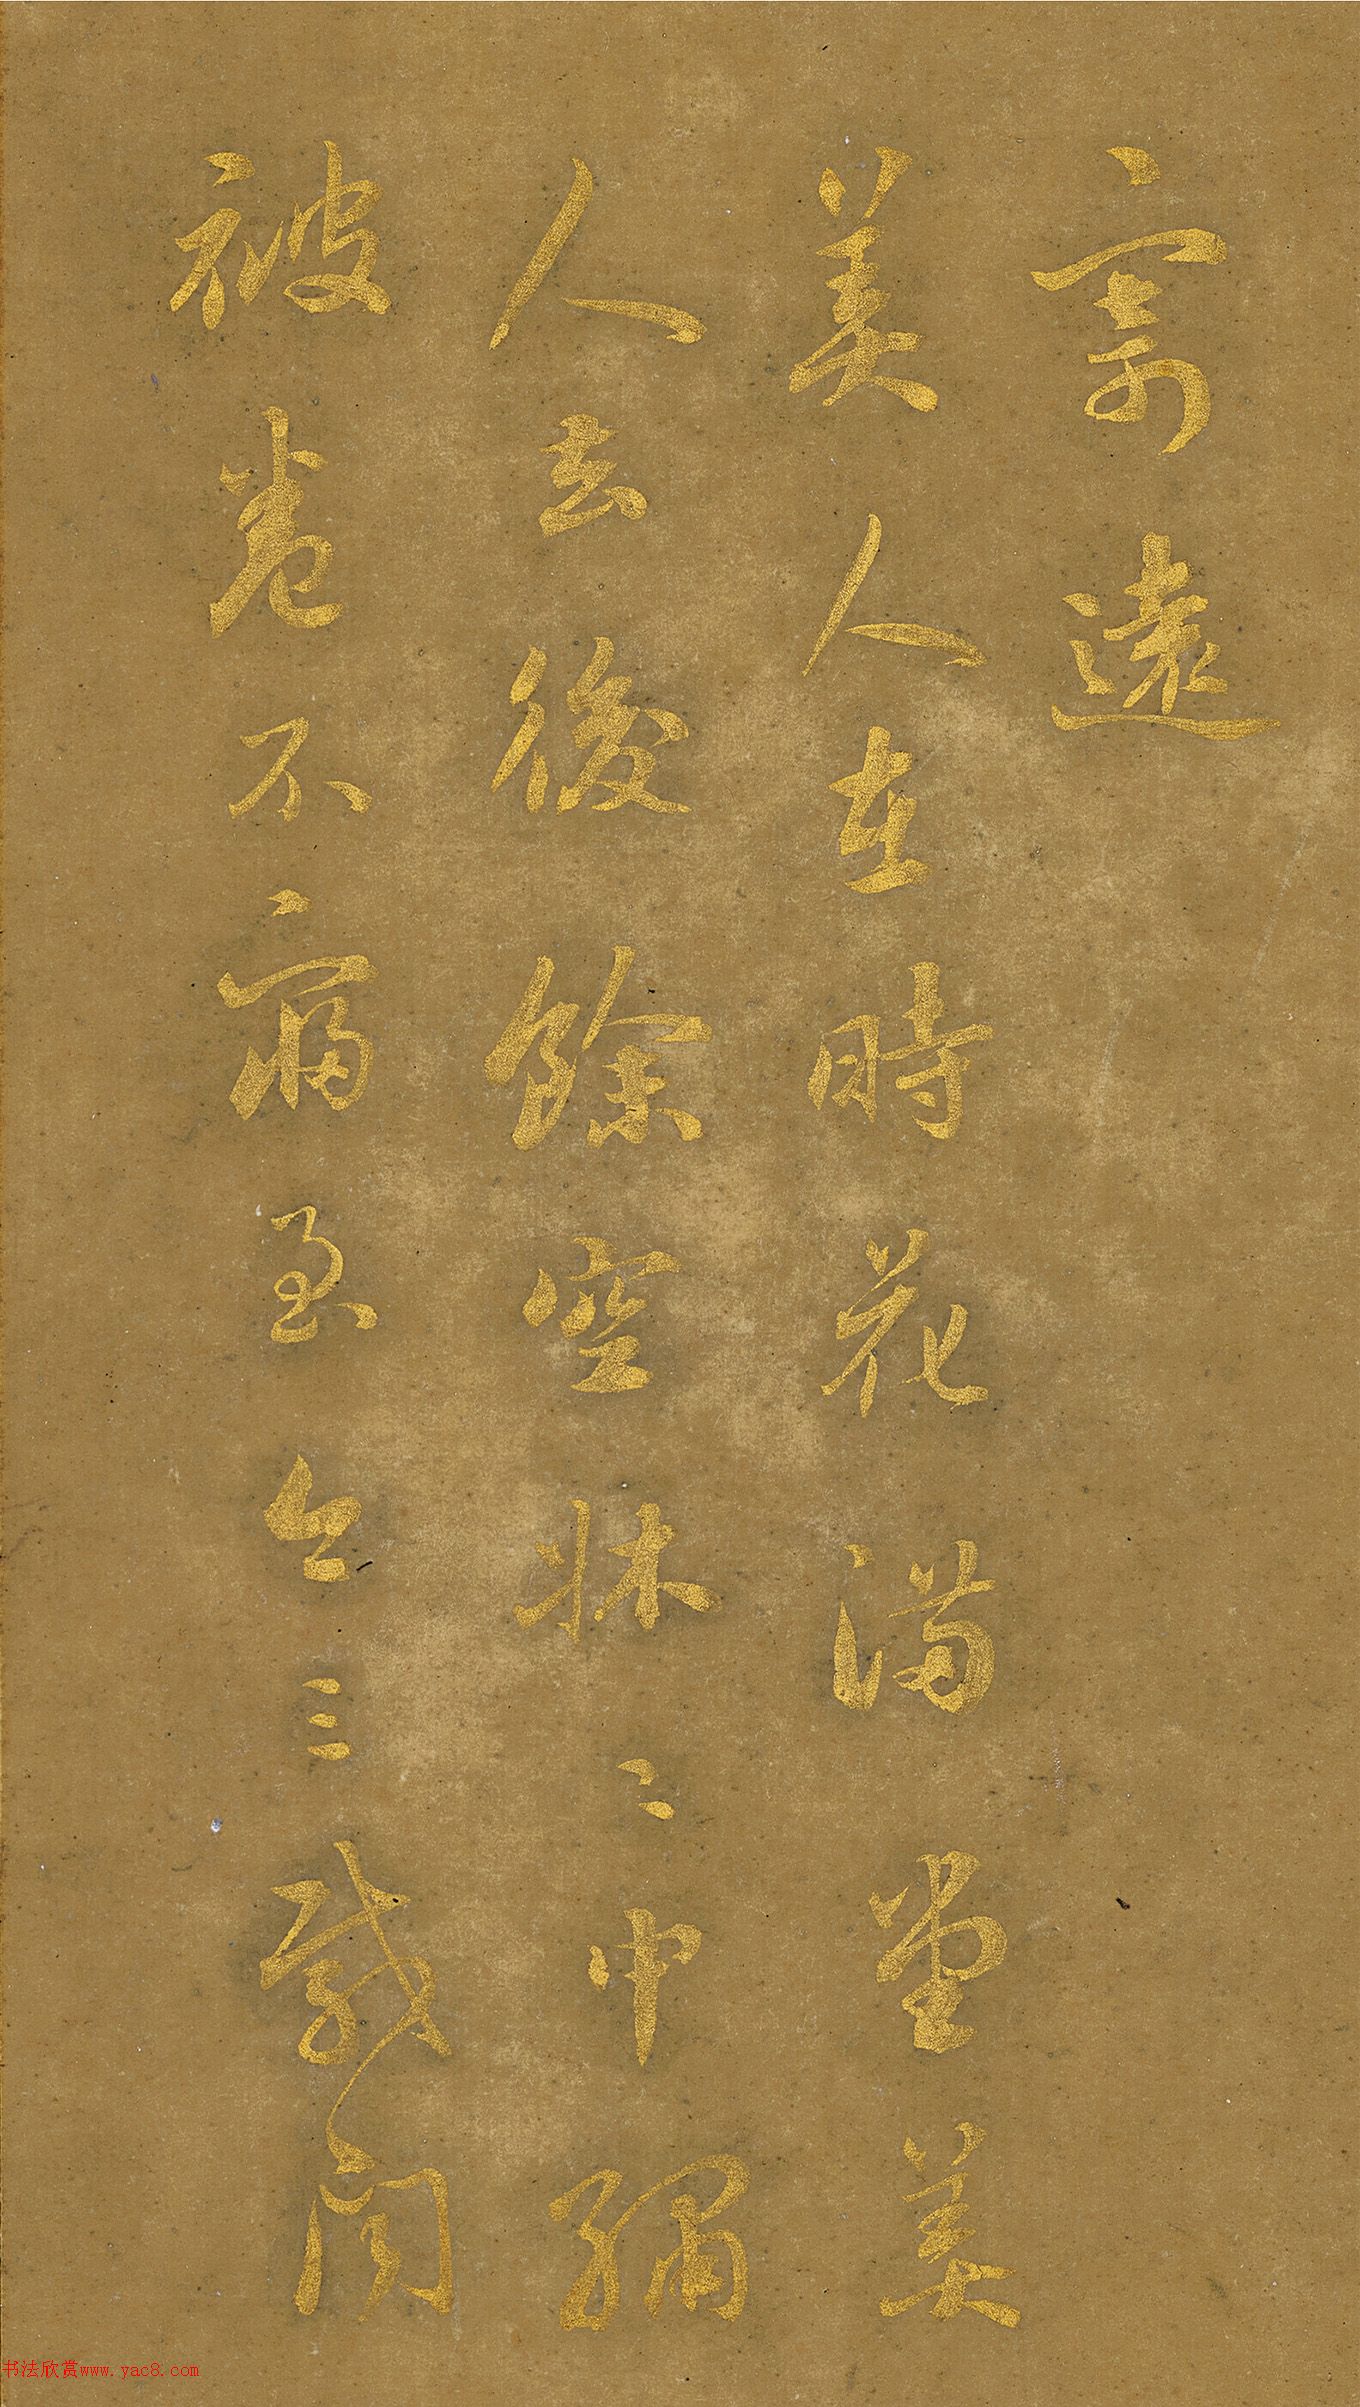 寄遠
美人在時花滿堂美
人去後餘空牀〻中繡
被卷不寢至今三載聞
书法欣赏www.yac8.com